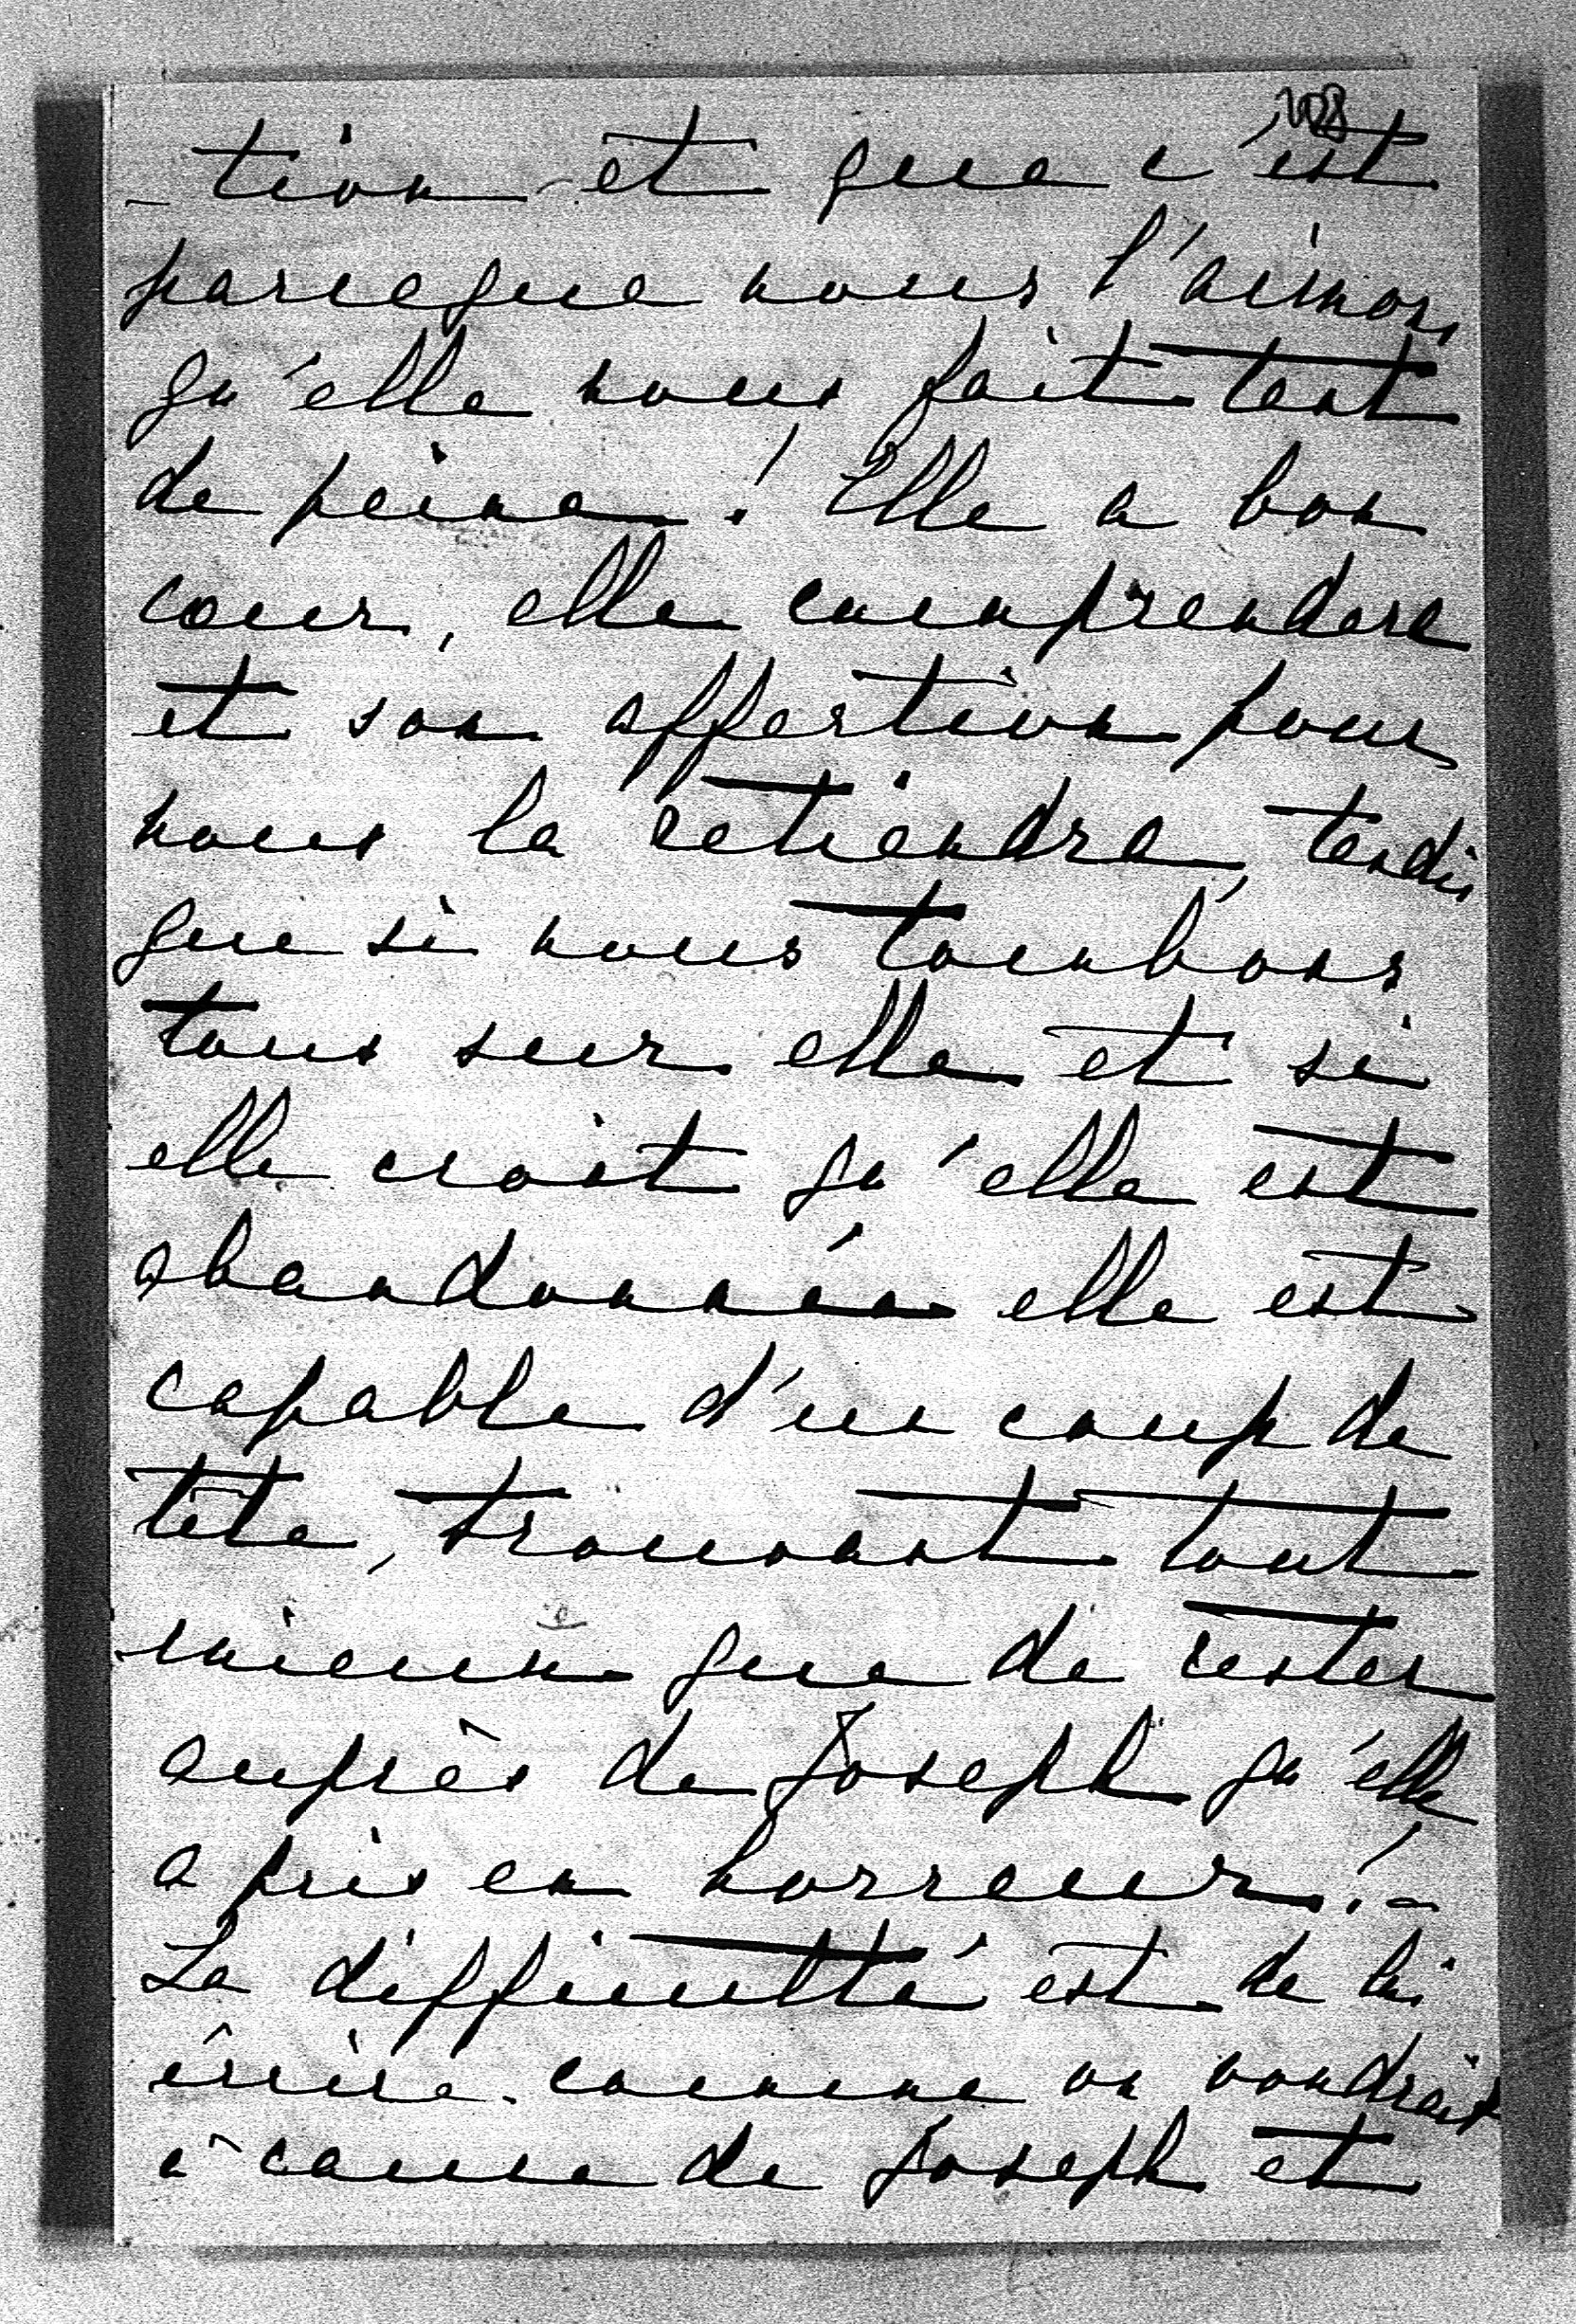 108
-tion et que c'est
parceque nous l'aimons
qu'elle nous fait tant
de peine ! Elle a bon
coeur, elle comprendera
et son affection pour
nous la retiendra, tandis
que si nous tombons
tous sur elle et si
elle croit qu'elle est
abandonnée elle est
capable d'un coup de
tête, trouvant tout
mieux que de rester
auprès de Joseph qu'elle
a pris en horreur ! -
La difficulté est de lui
écrire comme on voudrait
à cause de Joseph et